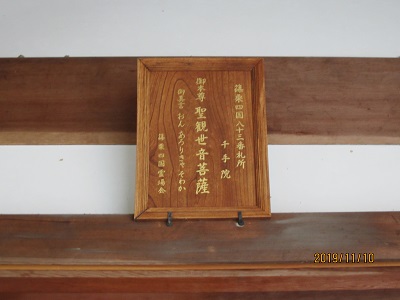 篠栗四国八十三番札所
千手院
御本尊 聖観世音菩薩
御真言 おん あろりきや そわか
篠栗四国霊場会
2019/11/10